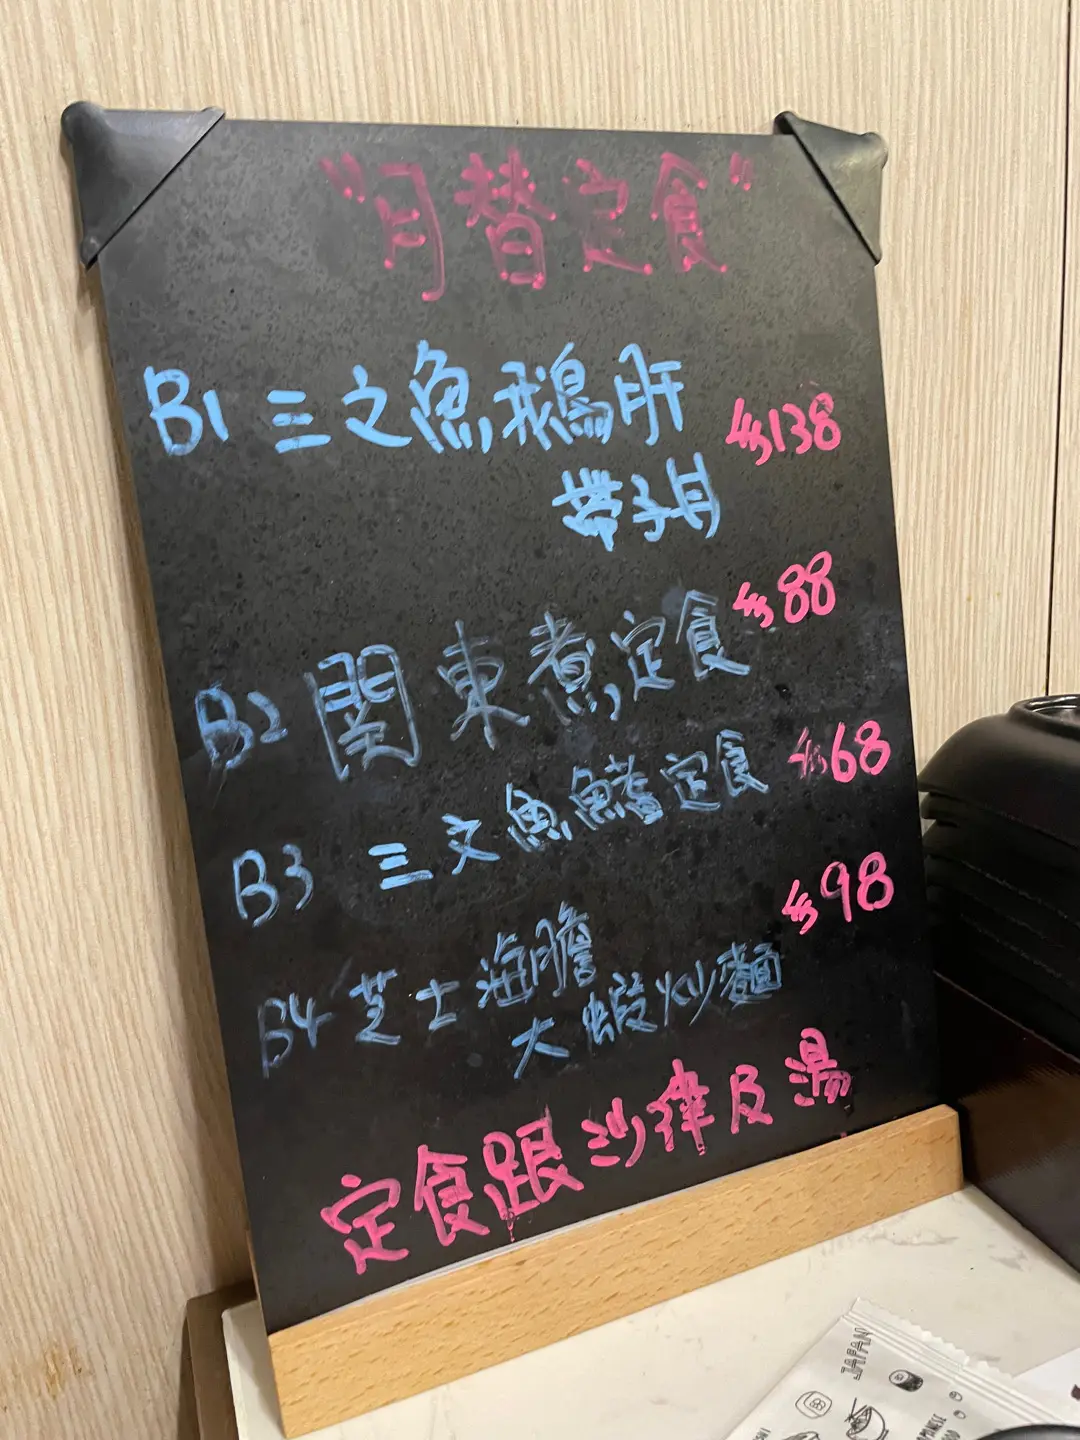 "月替定食"
B1 三文魚鵝肝 $138
帶子丼
B2 関東煮定食 $88
B3 三文魚鰭定食 $68
B4 芝士海膽 $98
大蝦炒麵
定食跟沙律及湯
JAPAN